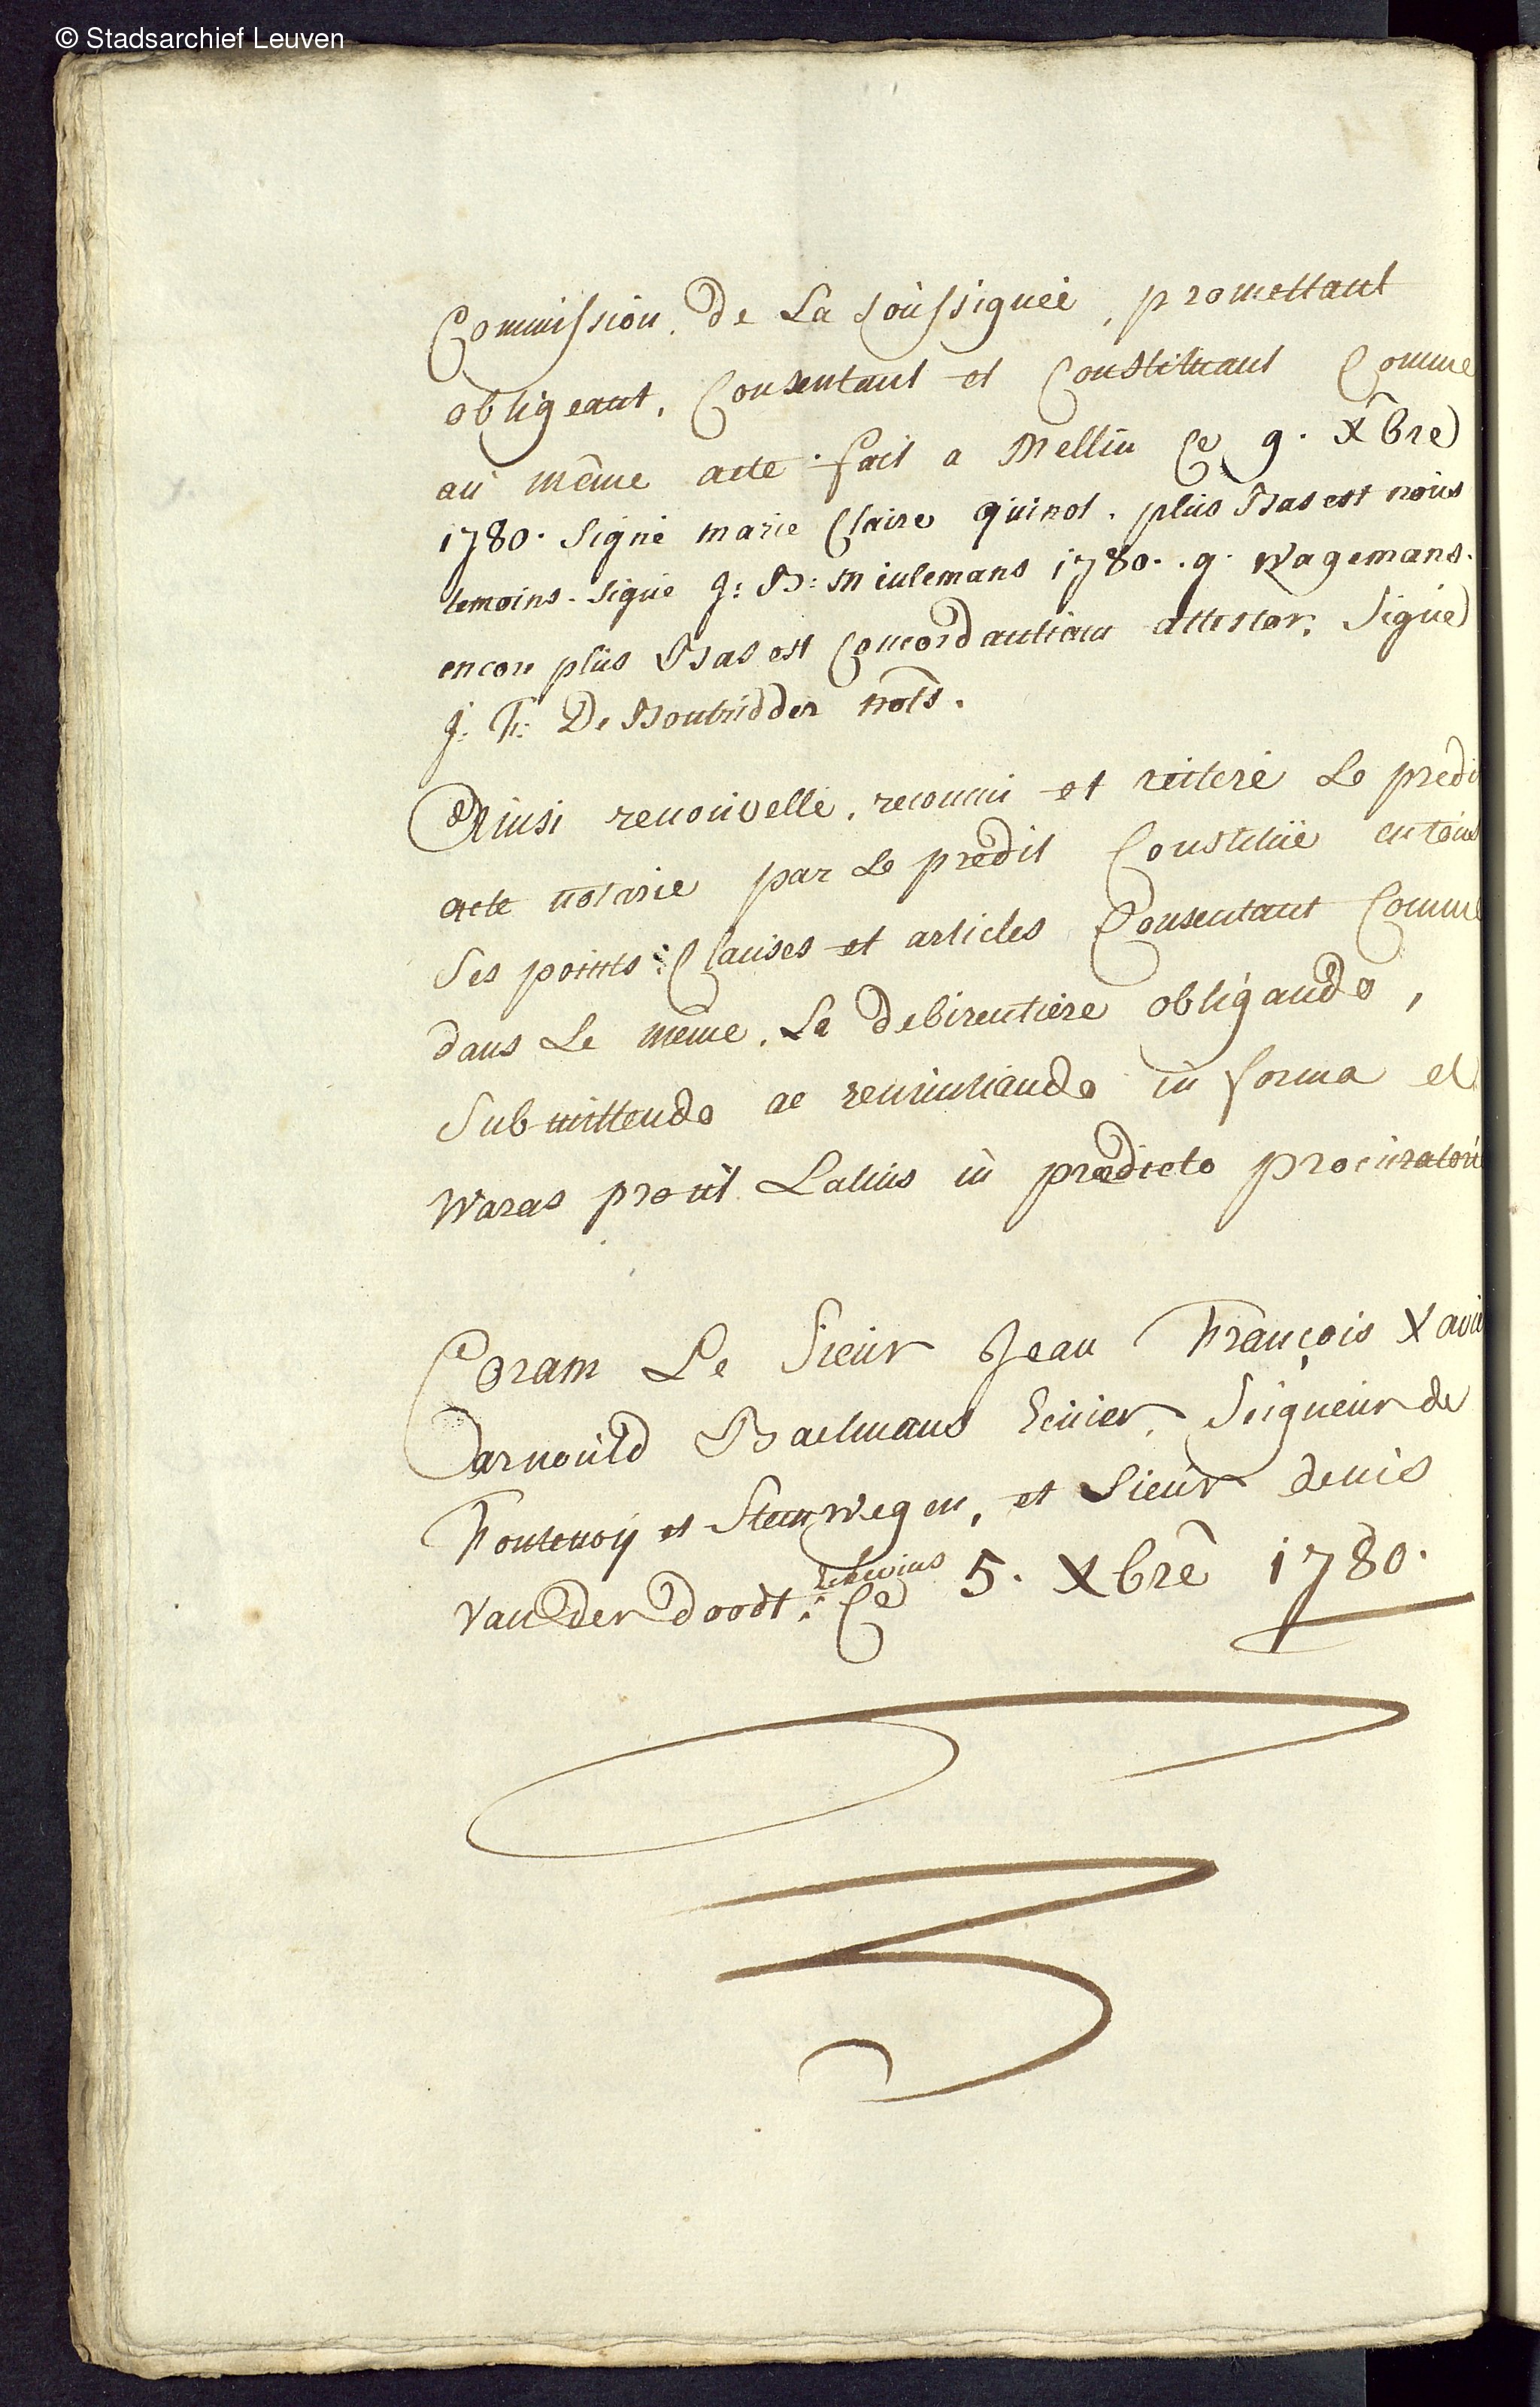 © Stadsarchief Leuven
Commission. de La soussignée, promettant
obligeant, Consentant et Constituant Comme
au même acte fait a Mellin Ce 9. Xbre
1780. Signé marie Claire quinot. plus Bas est nous
temoins. signé J: B: Miulemans 1780. . g. Wagemans.
encore plus Bas est Concordantiam attestor. Signé
J. F: De Boutridder nots.
Ainsi renouvellé, reconnu et reiteré Le predi
acte notarié par Le predit Constitué en tous
Ses points: Clauses et articles Consentant Comme
dans Le même. La debirentiere obligando,
Submittendo ac renuntiando in forma et
Waras prout Latius in prædicto procuratori
Coram Le Sieur Jean François Xavie
arnould Baelmans Ecuier, Seigneur de
Fontenoy et Steenwegen, et Sieur denis
Van Der doodt: Ce 5. Xbre 1780.